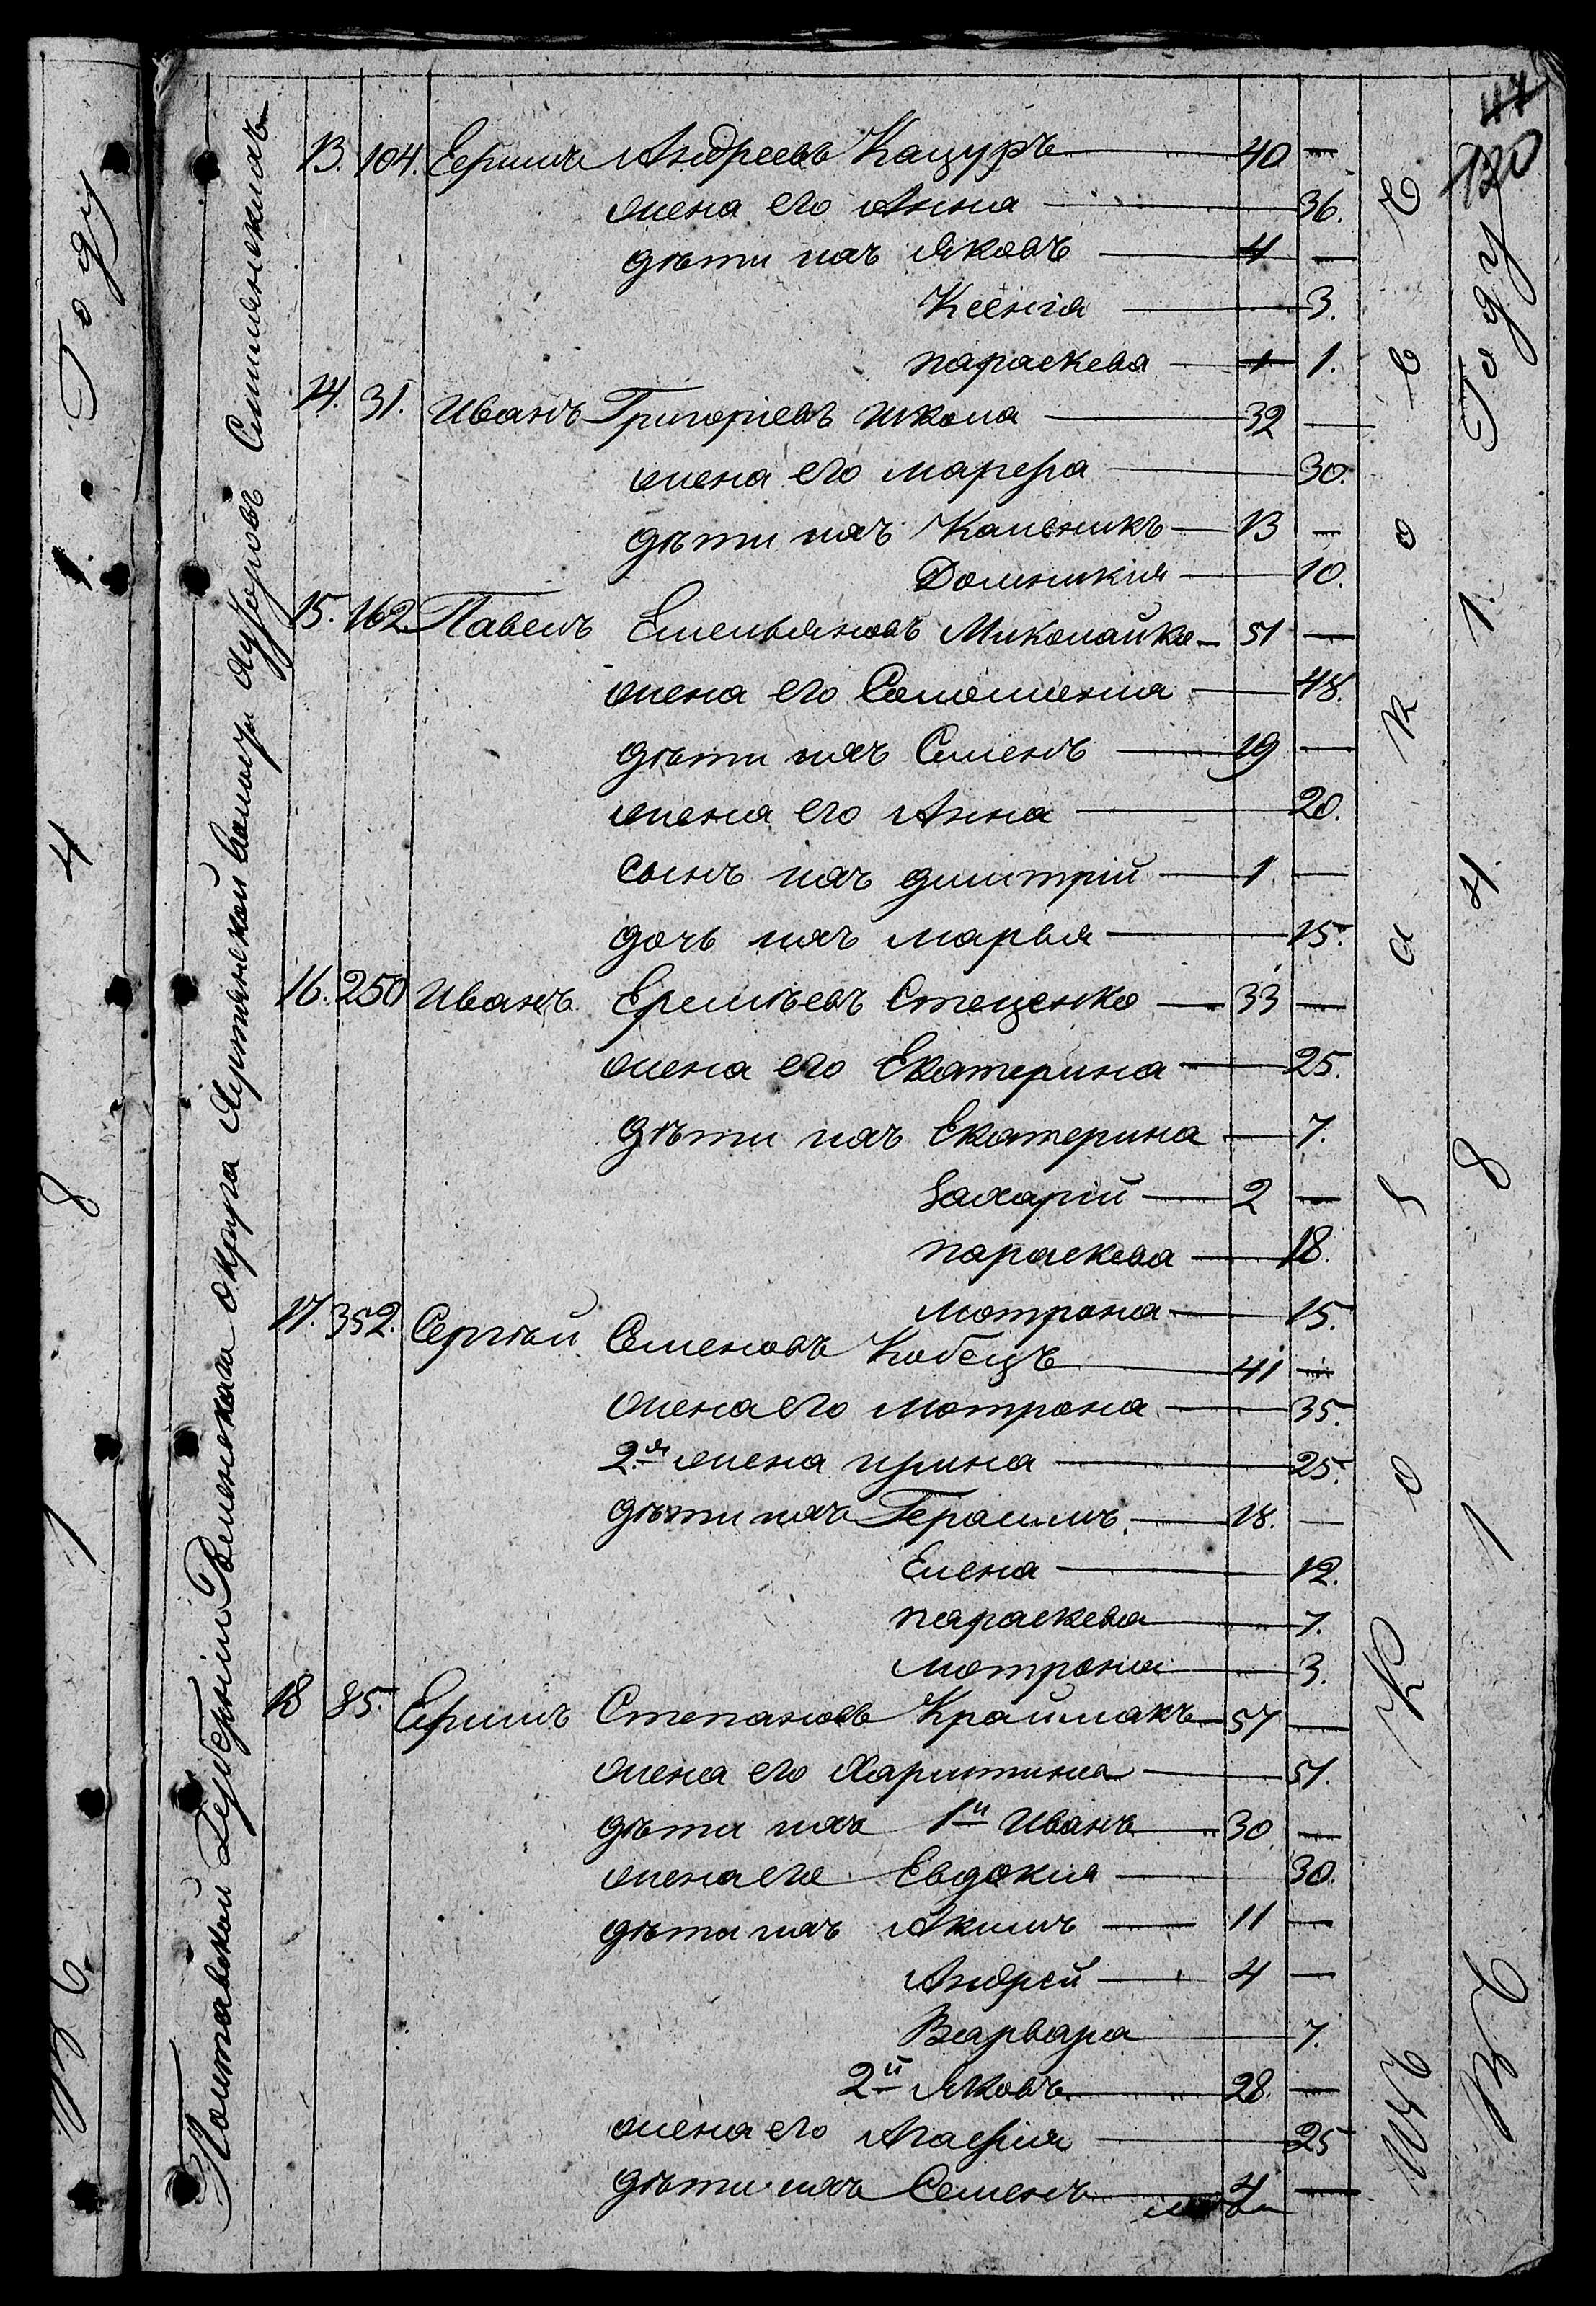 47
120
13. 104. Ефимъ Андреевъ Кацуръ 40 —
жена его Анна 36.
дѣти ихъ Яковъ 4 —
Ксенія 3.
параскева 1 1.
14. 31. Иванъ Григоріевъ Школа 32 —
жена его марфа 30.
дѣти ихъ Кальникъ 13 —
Домникия 10.
15. 162 Павелъ Емельяновъ Миколайко 51 —
жена его Соломиения 48.
дѣти ихъ Семенъ 19 —
жена его Анна 20.
сынъ ихъ димитрій 1 —
дочь ихъ марья 15.
16. 250 Иванъ Еремѣевъ Стеценко 33 —
жена его Екатерина 25.
дѣти ихъ Екатерина 7.
Захарій 2 —
параскева 18.
мотрона 15.
17. 352. Сергѣй Семеновъ Кобецъ 41 —
жена его мотрона 35.
2я жена ирина 25.
дѣти ихъ Герасимъ 18. —
Елена 12.
параскева 7.
мотрона 3.
18 85. Ефимъ Степановъ Краймакъ 57 —
жена его Харитина 51.
дѣти ихъ 1й Иванъ 30 —
жена его Евдокия 30.
дѣти ихъ Акимъ 11 —
Андрей 4 —
Варвара 7.
2й Яковъ 28. —
жена его Агафия 25
дѣти ихъ Семенъ 4 —
Полтавской Губерніи Роменскаго округа
Въ 1 8 4 1. Году
Въ 1 8 4 1. Году